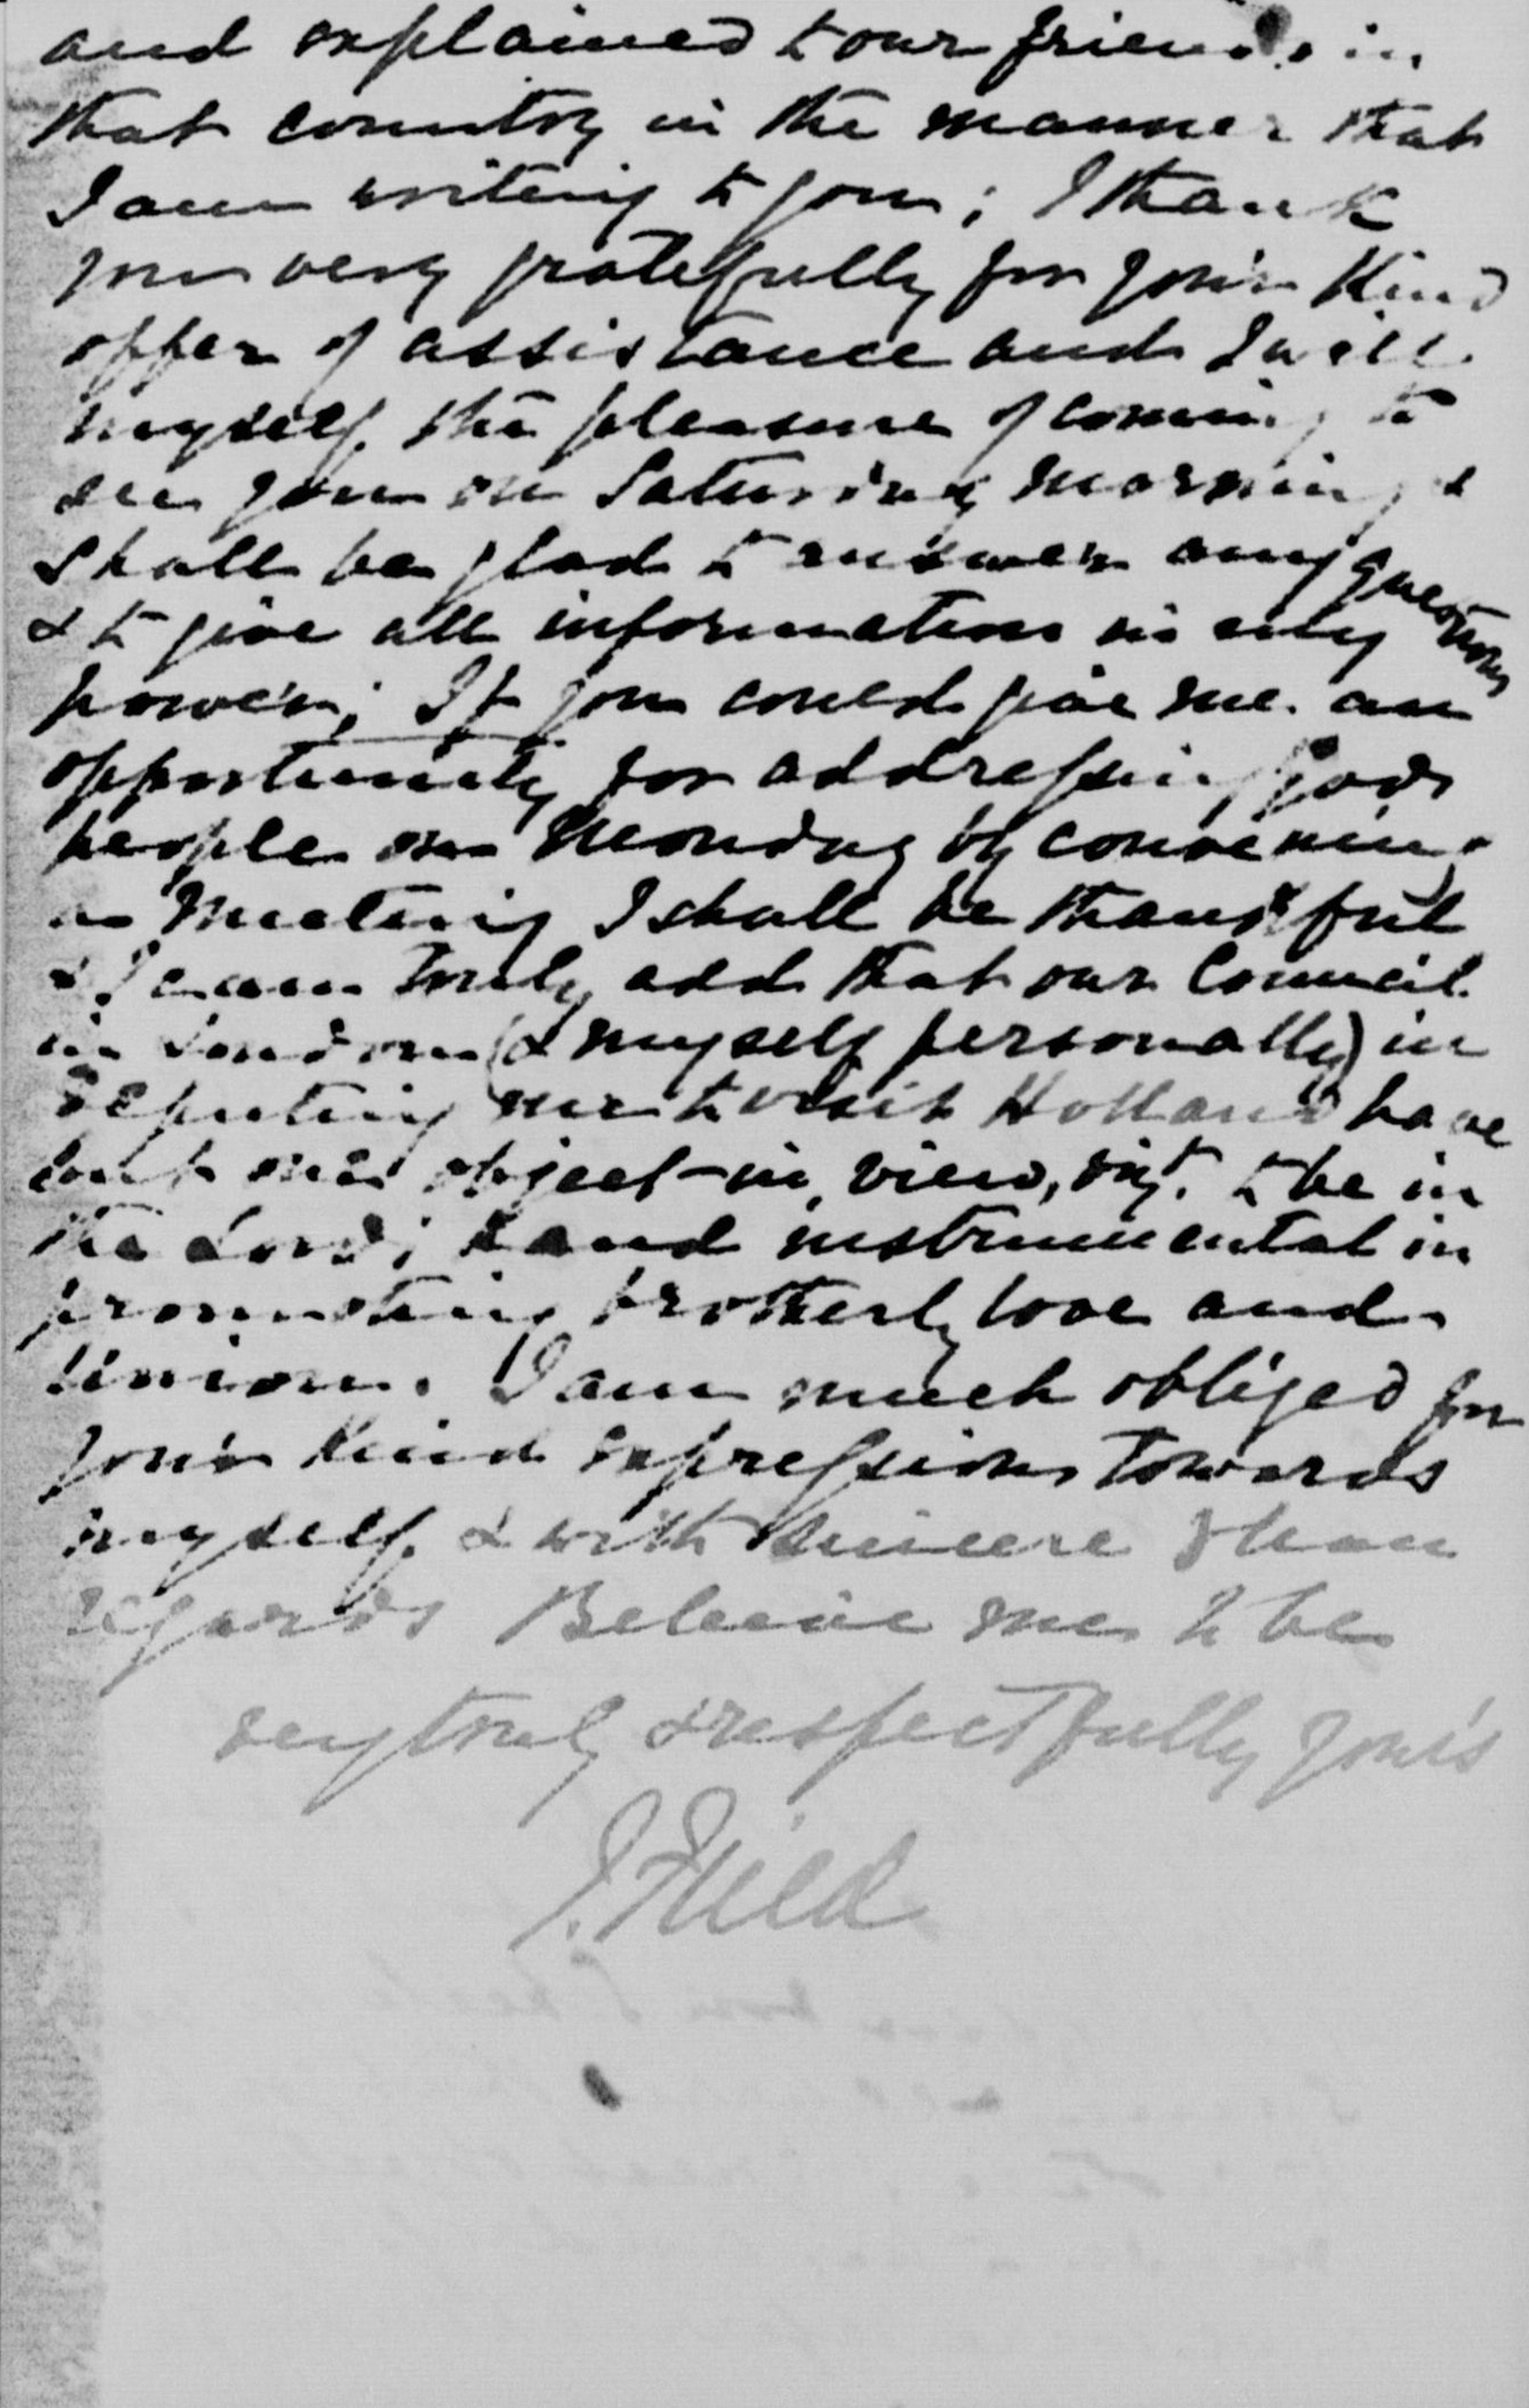 and explained to our friends in
that country in the manner that
I am writing to you; I thank
you very gratefully for your kind
offer of assistance and I will
myself the pleasure of coming to
see you on Saturday morning &
shall be glad to answer any questions
& to give all information in my
power; If you could give me an
opportunity for addressing God's
people on Monday by convening
a Meeting I shall be thankful
& I can truly add that our Council
in London (& myself personally) in
deputing me to visit Holland have
but one object in view, viz. to be in
the Lord's hand instrumental in
promoting brotherly love and
Union. I am much obliged for
your kind expressions towards
myself & with sincere
regards Believe me to be
very truly & respectfully yours
J. Field